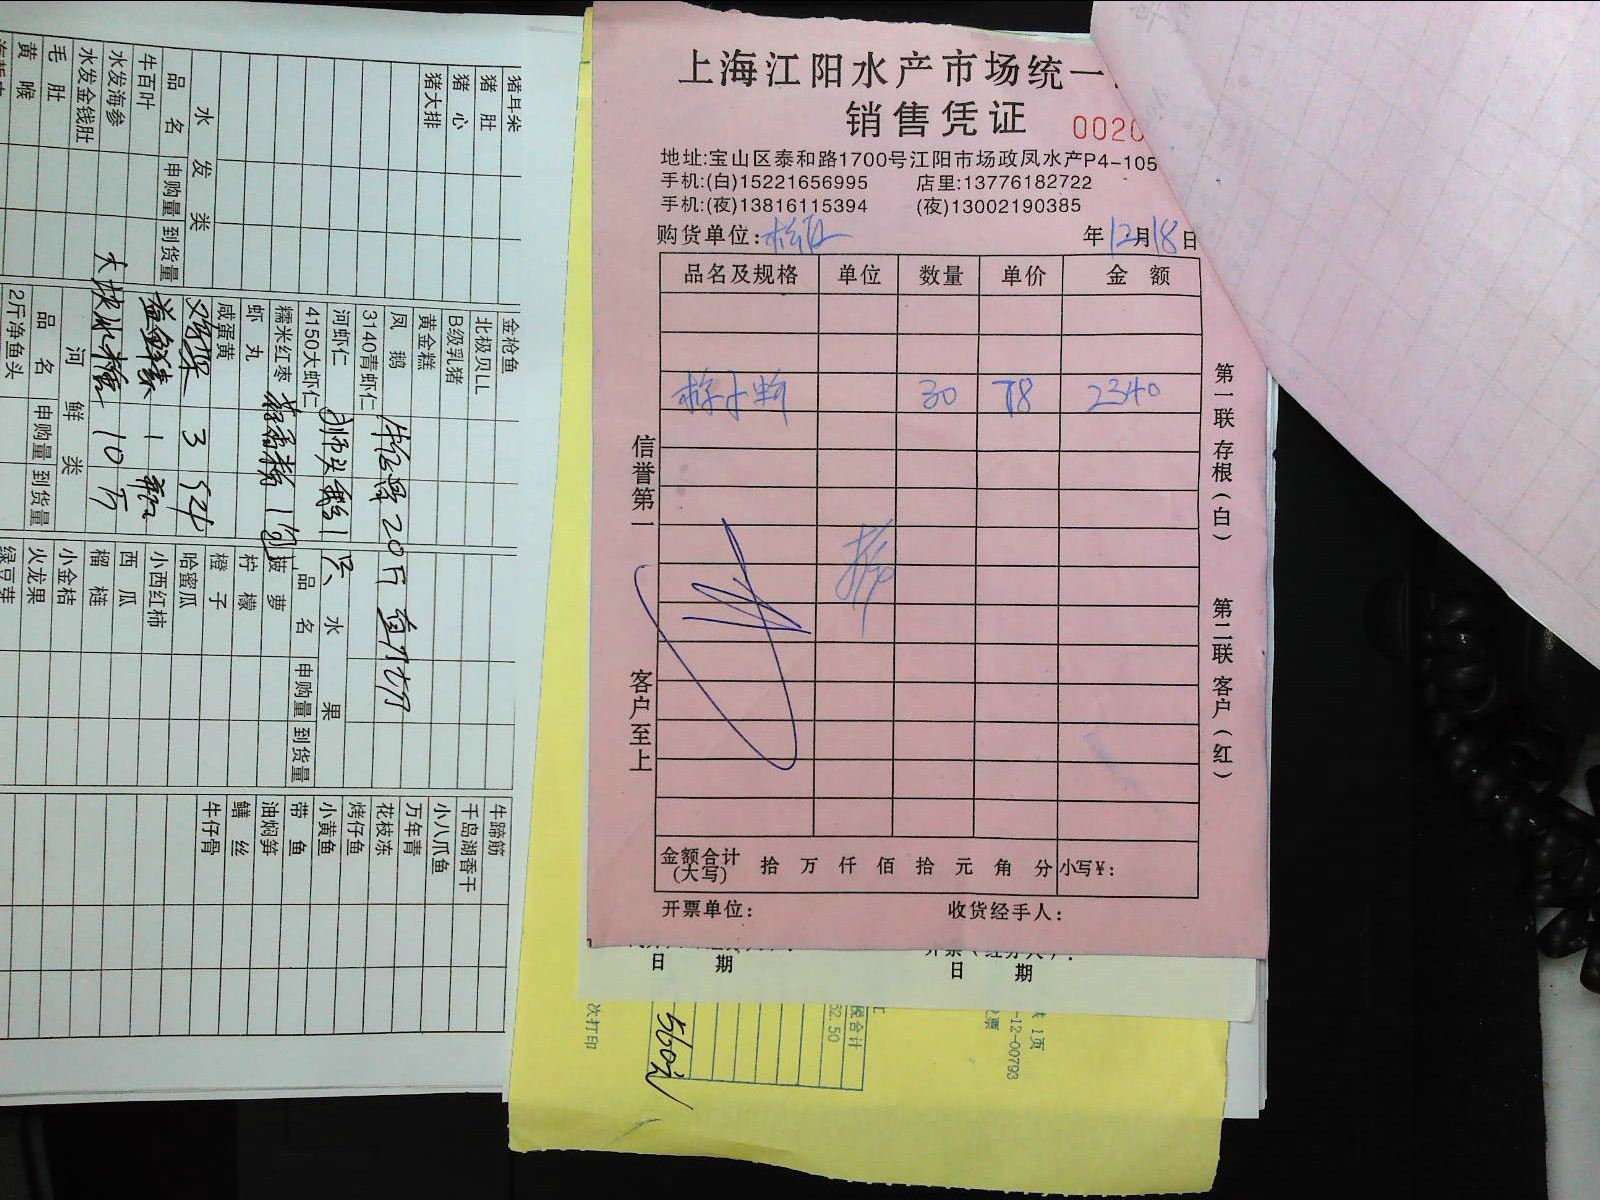 上海江阳水产市场统一
销售凭证 0020
地址:宝山区泰和路1700号江阳市场政凤水产P4-105
手机:(白)15221656995 店里:13776182722
手机:(夜)13816115394 (夜)13002190385
购货单位: 年12月18日
品名及规格 单位 数量 单价 金额
30 78 2340
信誉第一 客户至上
第一联存根(白) 第二联客户(红)
金额合计(大写) 拾 万 仟 佰 拾 元 角 分 小写¥:
开票单位: 收货经手人:
日 期 日 期
税合计
32.50
560元
共 1页
-12-00793
次打印
猪耳朵
猪肚
猪心
猪大排
水发类
品名 申购量 到货量
牛百叶
水发海参
水发金钱肚
毛肚
黄喉
金枪鱼
北极贝LL
B级乳猪
黄金糕
凤鹅
3140青虾仁
河虾仁
4150大虾仁
糯米红枣
虾丸
咸蛋黄
鸡架 3
益鲜素 1 瓶
10斤
狮头鹅1只
20斤
河鲜类
品名 申购量 到货量
2斤净鱼头
水果
品名 申购量 到货量
菠萝
柠檬
橙子
哈蜜瓜
小西红柿
西瓜
榴梿
小金桔
火龙果
绿豆芽
牛蹄筋
千岛湖香干
小八爪鱼
万年青
花枝冻
烤仔鱼
小黄鱼
带鱼
油焖笋
鳝丝
牛仔骨